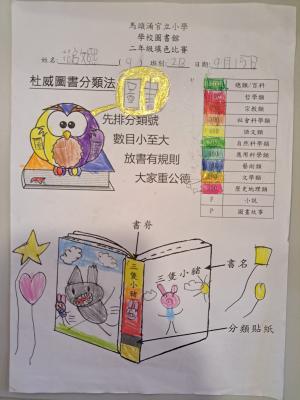 馬頭涌官立小學
學校圖書館
二年級填色比賽
姓名: (9) 班別: 2B 日期: 9月15日
杜威圖書分類法
先排分類號
數目小至大
放書有規則
大家重公德
總類/百科
哲學類
宗教類
社會科學類
語文類
自然科學類
應用科學類
藝術類
文學類
歷史地理類
F 小說
P 圖畫故事
書脊
三隻小豬
三隻小豬
書名
分類貼紙